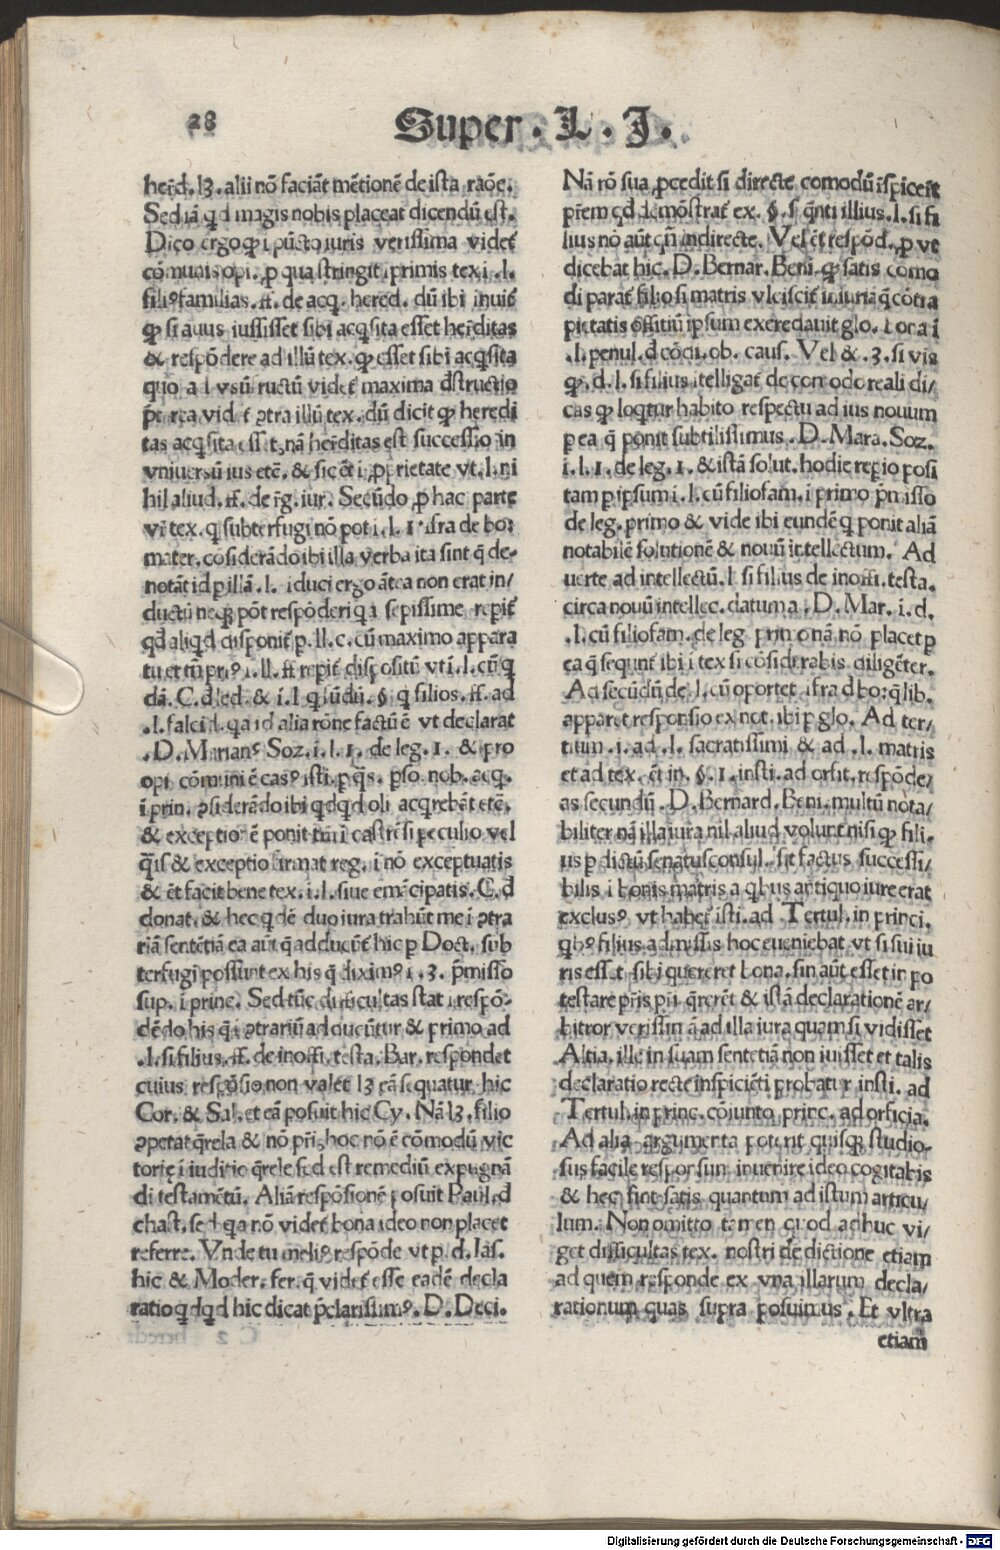 28
Super . L . I .
herd. lꝫ. alii nō faciāt mētionē de ista raōe.
Sed iā qd magis nobis placeat dicendū est.
Dico ergo qp i pūcto iuris verissima videt̄
cōmunis opi. p qua stringit i primis tex i .l.
filiꝰ familias. ff. de acq. hered. dū ibi inuit̄
qp si auus iussisset sibi acqsita esset herditas
& respōdere ad illū tex. qp esset sibi acqsita
quo a l vsū ructū videt̄ maxima dstructio
p̄t rea vid t ꝯtra illū tex. dū dicit qp heredi
tas acqsita esset, nā herditas est successio in
vniuersū ius etc̄. & sic ēt i pprietate vt .l. ni
hil aliud. ff. de rḡ. iur. Secūdo p hac parte
vr̄ tex. q subterfugi nō pot i .l. 1. ifra de bo:
mater. cōsiderādo ibi illa verba ita sint q̄ de-
notāt id p illā .l. iduci ergo ātea non erat in/
ductū neqꝫ pōt respōderi q i sepissime repit̄
qd aliqd disponit̄ p. ll. c. cū maximo appara
tu et tn̄ priꝰ i. ll. ff repit̄ dispositū vt i .l. cū q
dā. C. d led. & i .l q. fūdū. §. q filios. ff. ad
.l. falcid. qa id alia rōne factū ē vt declarat
.D. Marianꝰ Soz. i .l. 1. de leg. 1. & pro
opi cōmuni ē casꝰ isti. p q̄s. pso. nob. acq.
i prin. ꝯsiderādo ibi qdqd oli acqrebāt etc̄.
& exceptionē ponit tm̄ i castrēsi peculio vel
q̄si & exceptio firmat reg. i nō exceptuatis
& ēt facit bene tex. i .l. siue emācipatis. C. d
donat. & hec qdē duo iura trahūt me i ꝯtra
riā sentētiā ea aūt q̄ adducūt̄ hic p Doct. sub
terfugi possunt ex his q̄ diximꝰ i. 3. p̄misso
sup. i princ. Sed tūc difficultas stat i respō-
dēdo his q̄ i ꝯtrariū adducūtur & primo ad
.l. si filius. ff. de inoffi. testa. Bar. respondet
cuius respōsio non valet lꝫ eā sequatur hic
Cor. & Sal. et eā posuit hic Cy. Nā lꝫ. filio
ꝯpetat q̄rela & nō pr̄i, hoc nō ē cōmodū vic
torię i iuditio q̄rele sed est remediū expugnā
di testamētū. Aliā respōsionē posuit Paul. d
chast. sed qa nō videt̄ bona ideo non placet
referre. Vnde tu meliꝰ respōde vt p. d. Ias.
hic & Moder. fer. q̄ videt̄ esse eadē decla
ratio qdqd hic dicat p̄clarissimꝰ. D. Deci.
Nā rō sua pcedit si directe comodū ispiceret
pr̄em qd demōstrat ex. §. f q̄nti illius .l. si fi
lius nō aūt cū indirecte. Vel ēt respōd. p vt
dicebat hic. D. Bernar. Beni. qp satis como
di parat filio si matris vlciscit̄ iniuriā q̄ cōtra
pietatis offitiū ipsum exeredauit glo. bona i
.l. penul. d cōdi. ob. caus. Vel &. 3. si vis
qp. d. l. si filius itelligat̄ de comodo reali di/
cas qp loqtur habito respectu ad ius nouum
p ea q̄ ponit subtilissimus. D. Mara. Soz.
i .l. 1. de leg. 1. & istā solut. hodie repio posi
tam p ipsum i .l. cū filiofam. i primo p̄misso
de leg. primo & vide ibi eundē q ponit aliā
notabilē solutionē & nouū intellectum. Ad
uerte ad intellectū. l si filius de inoffi. testa.
circa nouū intellec. datum a. D. Mar. i. d.
.l. cū filiofam. de leg. primo nā nō placet p
ea q̄ sequnt̄ ibi i tex si cōsiderabis diligēter.
Ad secūdū de .l. cū oportet ifra d bo: q̄ lib.
apparet responsio ex not. ibi p glo. Ad ter/
tium .i. ad .l. sacratissimi & ad .l. matris
et ad tex. ēt in. §. 1. insti. ad orfit. respōde/
as secundū. D. Bernard. Beni. multū nota/
biliter nā illa iura nil aliud volunt nisi qp fili-
us p dictū senatusconsul. sit factus successi/
bilis i bonis matris a qbus antiquo iure erat
exclusꝰ. vt habet̄ isti. ad Tertul. in princi.
qbꝰ filius admissis hoc eueniebat vt si sui iu
ris esset sibi quereret bona. sin aūt esset in po
testate pr̄is pr̄i q̄reret & istā declarationē ar/
bitror verissimā ad illa iura quam si vidisset
Altia. ille in suam sentetiā non iuisset et talis
declaratio recte inspiciēti probatur insti. ad
Tertul. in princ. cōiunto princ. ad orficia.
Ad alia argumenta poterit quisqꝫ studio-
sus facile responsum inuenire ideo cogitabis
& hec sint satis quantum ad istum articu/
lum. Non omitto tamen quod adhuc vi/
get difficultas tex. nostri de dictione etiam
ad quem responde ex vna illarum decla/
rationum quas supra posuimus. Et vltra
etiam
Digitalisierung gefördert durch die Deutsche Forschungsgemeinschaft - DFG